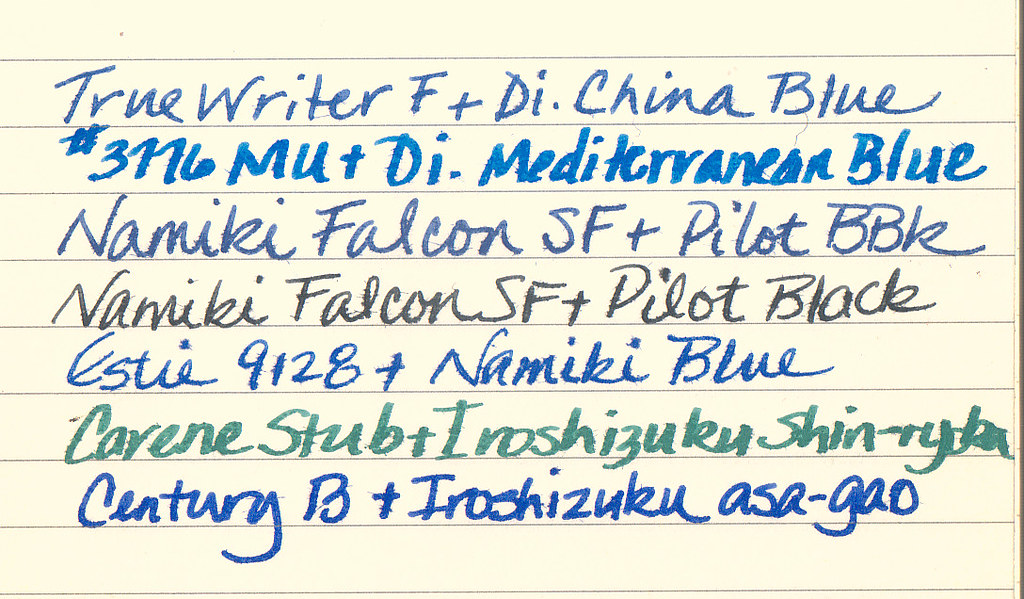 True Writer F + Di. China Blue
#3776 MU + Di. Mediterranean Blue
Namiki Falcon SF + Pilot BBk
Namiki Falcon SF + Pilot Black
Estie 9128 + Namiki Blue
Carene Stub + Iroshizuku Shin-ryoku
Century B + Iroshizuku asa-gao